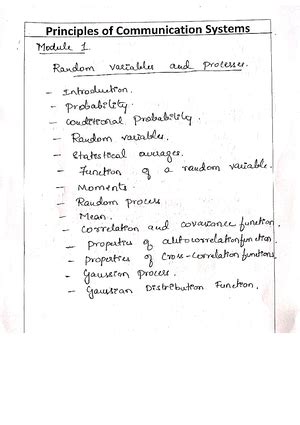 Principles of Communication Systems
Module 1.
Random variables and processes.
- Introduction.
- Probability.
- Conditional Probability.
- Random variables.
- Statistical averages.
- Function of a random variable.
- Moments.
- Random process
- Mean.
- Correlation and covariance function.
- Properties of autocorrelation function.
- Properties of Cross-Correlation functions.
- Gaussian process.
- Gaussian Distribution Function.